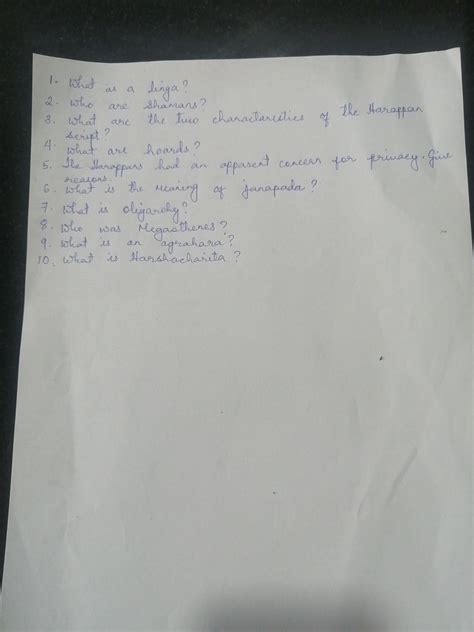 1. What is a linga?
2. Who are Shamans?
3. What are the two characteristics of the Harappan
script?
4. What are hoards?
5. The Harappans had an apparent concern for privacy. Give
reasons.
6. What is the meaning of janapada?
7. What is Oligarchy?
8. Who was Megasthenes?
9. What is an agrahara?
10. What is Harshacharita?